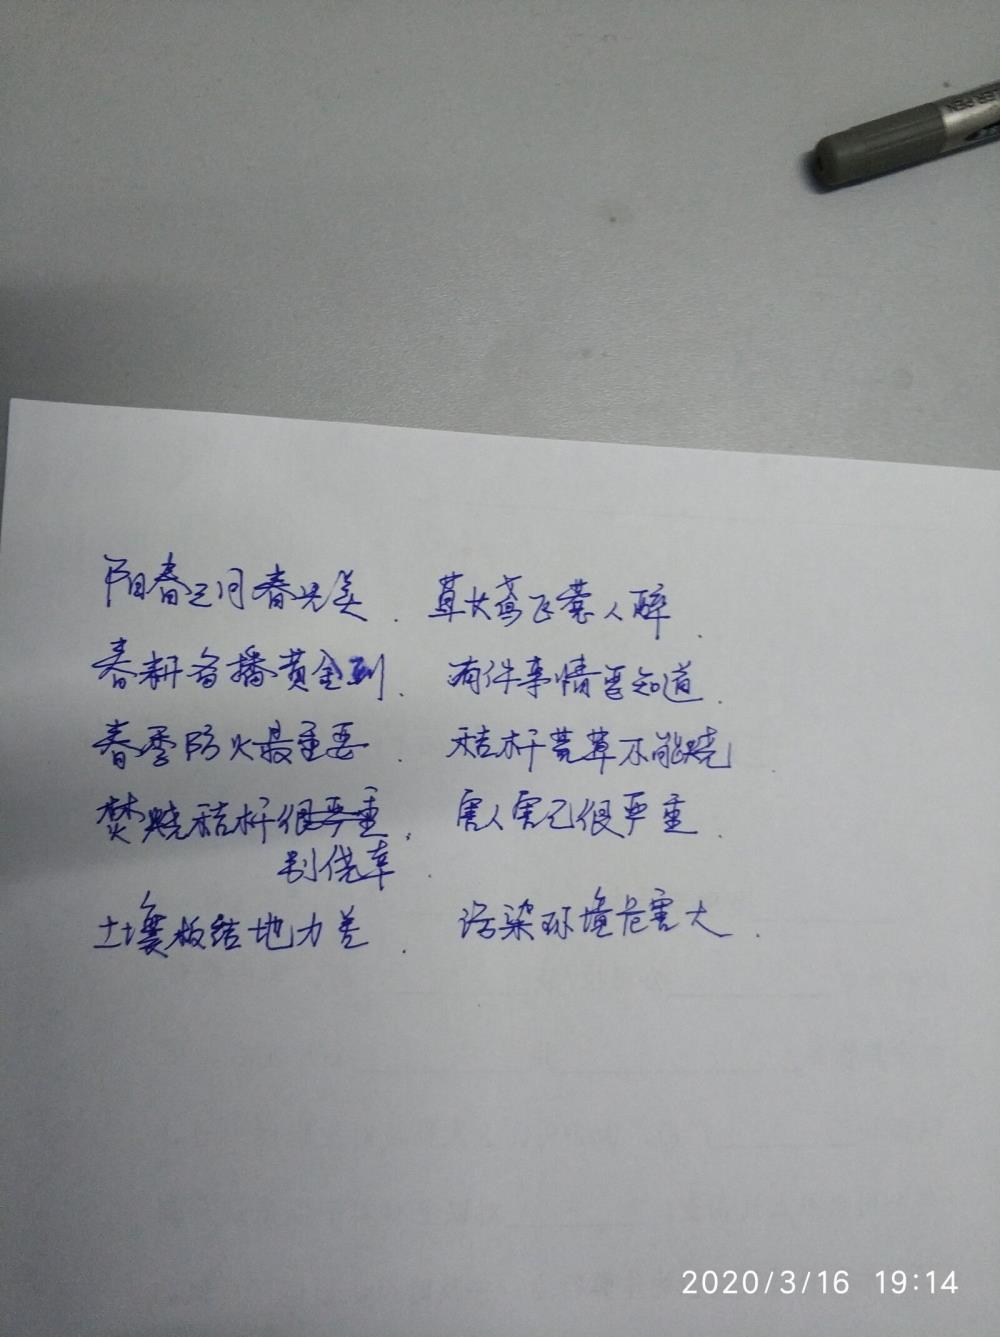 PEN
阳春三月春光美.草长莺飞惹人醉.
春耕备播黄金到.有件事情要知道.
春季防火最重要.秸杆荒草不能烧
焚烧秸杆很严重.害人害己很严重
别侥幸.
土壤板结地力差.污染环境危害大.
2020/3/16 19:14